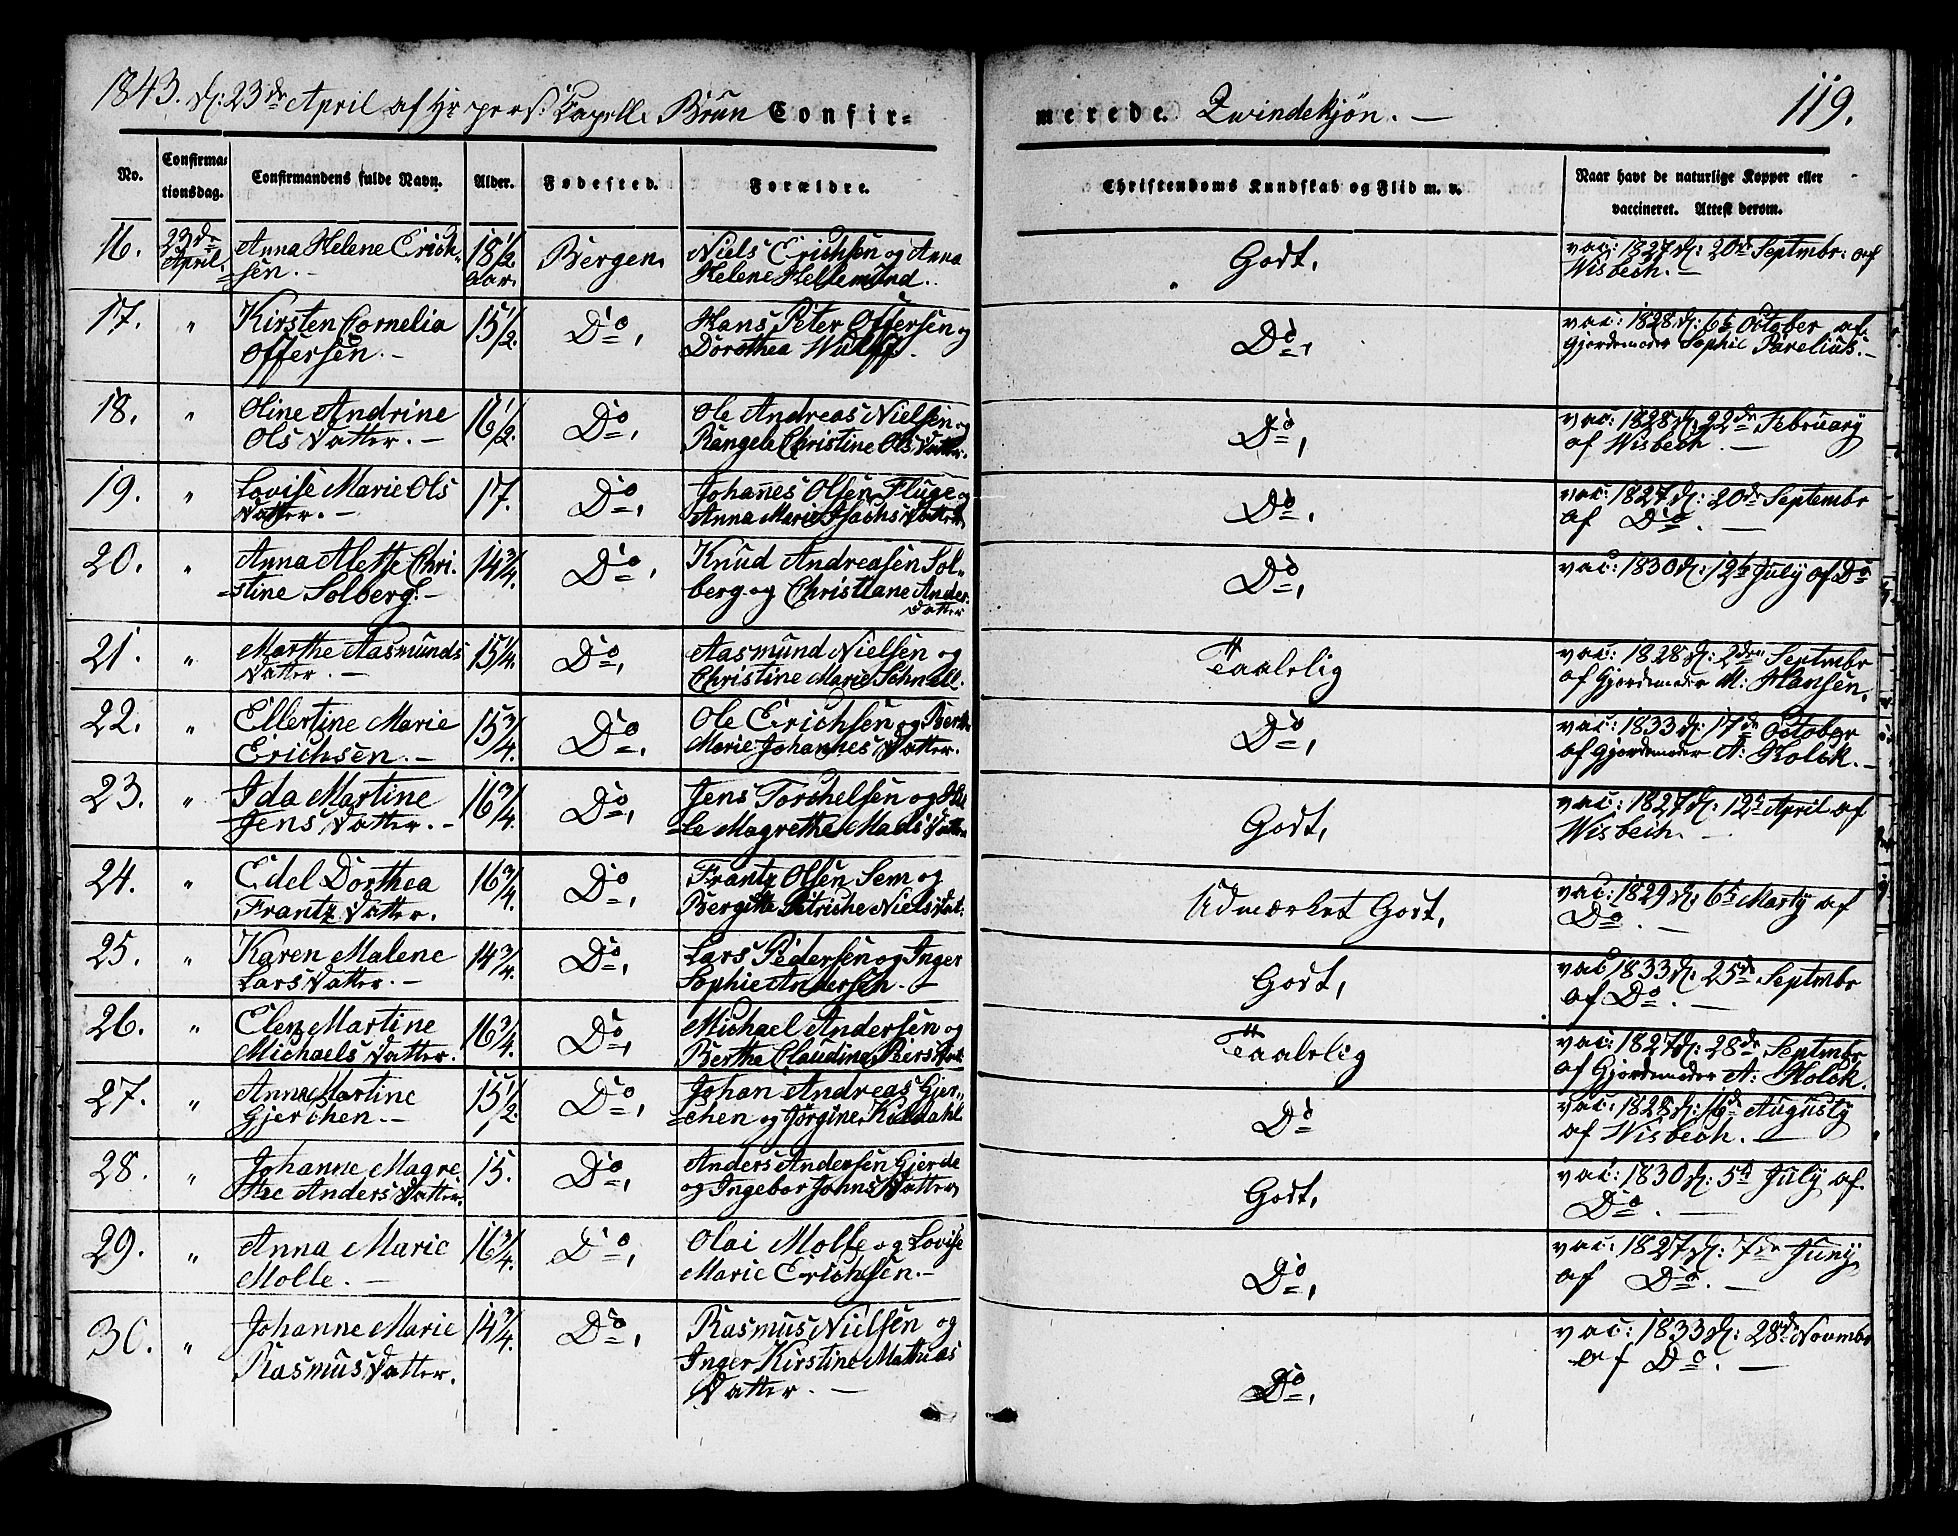 1843. d: 23de April af Hr pers: Capell: Brun Confir-
merede. Qvindekjøn. —
119.
No.
Confirma-
tionsdag.
Confirmandens fulde Navn.
Alder.
Fødested.
Forældre.
Christendoms Kundskab og Flid m. v.
Naar havt de naturlige Kopper eller
vaccineret. Attest derom.
16. 23de April. Anna Helene Erich- 18 1/2 Bergen, Niels Erichsen og Anna Godt, vac: 1827 d: 20de Septmbr: af
sen. — aar. Helene Hellemund. Wisbech. —
17. " Kirsten Cornelia 15 1/2. Do, Hans Peter Offersen og Do, vac: 1828 d: 6te October af
Offersen. — Dorothea Wulff. Gjordemoder Sophie Parelius. —
18. " Oline Andrine 16 1/2. Do, Ole Andreas Nielsen og Do, vac: 1828 d: 22de February
Ols Datter. — Rangele Christine Ols Datter. af Wisbech. —
19. " Lovise Marie Ols 17. Do, Johannes Olsen Fluge og Do, vac: 1827 d: 20de Septembr
Datter. — Anna Marie Isachs Datter, af Do. —
20. " Anna Alette Chri- 14 3/4. Do, Knud Andreasen Sol- Do, vac: 1830 d: 12te July af Do
stine Solberg. — berg og Christiane Anders
Datter
21. " Marthe Aasmunds 15 1/4. Do, Aasmund Nielsen og Taalelig vac: 1828 d: 2den Septmbr
Datter. — Christine Marie Schnell. af Gjordemoder M: Hansen,
22. " Ellertine Marie 15 3/4. Do, Ole Erichsen og Berthe Do, vac: 1833 d: 17de October
Erichsen. — Marie Johannes Datter. af Gjordemoder A: Holck. —
23. " Ida Martine 16 3/4. Do, Jens Torchelsen og Hel Godt, vac: 1827 d: 12te April af
Jens Datter. — le Magrethe Mads Datter Wisbech. —
24. " Edel Dorthea 16 3/4. Do, Frantz Olsen Sem og Udmærket Godt, vac: 1829 d: 6te Marty af
Frantz Datter. Bergitte Petriche Niels Dat. Do. —
25. " Karen Malene 14 3/4. Do, Lars Pedersen og Inger Godt, vac 1833 d: 25de Septmbr
Lars Datter. — Sophie Andersen. — af Do. —
26. " Elen Martine 16 3/4. Do, Michael Andersen og Taalelig vac: 1827 d: 28de Septmbr
Michaels Datter. Berthe Claudine Peers Dat. af Gjordemoder A: Holck.
27. " Anna Martine 15 1/2. Do, Johan Andreas Gjer- Do vac: 1828 d: 16de Augusty
Gjerchen. — chen og Jørgine Kaldahl af Wisbech. —
28. " Johanne Magre 15. Do, Anders Andersen Gjerde Godt, vac: 1830 d: 5te July af
the Anders Datter. og Ingebor Johns Datter, Do. —
29. " Anna Marie 16 3/4. Do, Olai Molle og Lovise Do, vac: 1827 d: 7de Juny
Molle. — Marie Erichsen. — af Do. —
30. " Johanne Marie 14 3/4. Do, Rasmus Nielsen og Do, vac: 1833 d: 28de Novmbr
Rasmus Datter. Inger Kirstine Mathias af Do. —
Datter. —